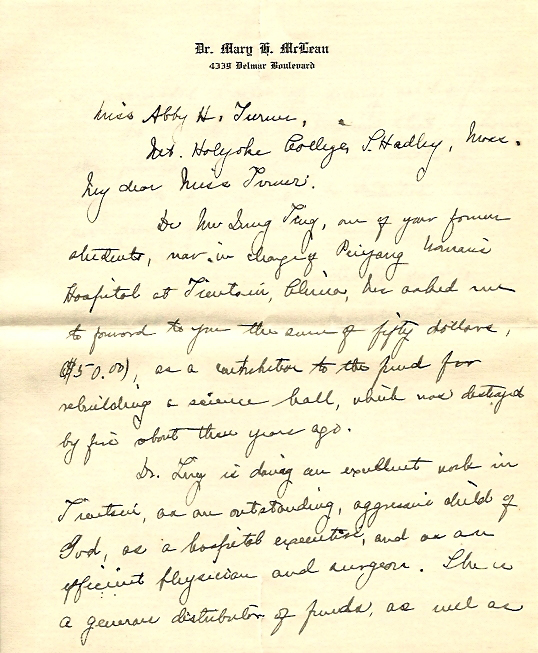 Dr. Mary H. McLean
4339 Delmar Boulevard
Miss Abby H. Turner,
Mt. Holyoke College, S. Hadley, Mass.
My dear Miss Turner.
Dr Me Iung Ting, one of your former
students, now in charge of Peiyang Woman's
Hospital at Tientsin, China, has asked me
to forward to you the sum of fifty dollars,
($50.00), as a contribution to the fund for
rebuilding a science hall, which was destroyed
by fire about three years ago.
Dr. Ting is doing an excellent work in
Tientsin, as an outstanding, aggressive child of
God, as a hospital executive, and as an
efficient physician and surgeon. She is
a generous distributor of funds, as well as